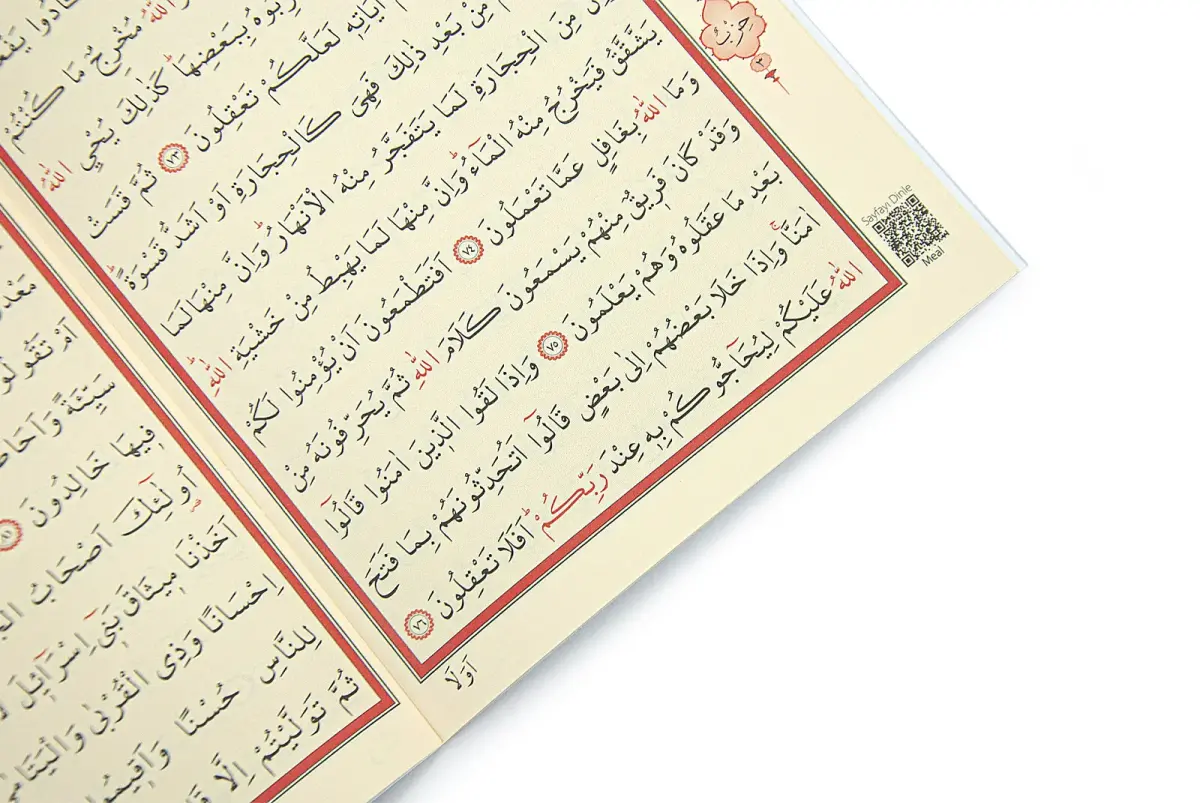 كَادُوا
اللّٰهُ مُخْرِجٌ مَا كُنْتُمْ
بِبَعْضِهَا كَذٰلِكَ يُحْيِي اللّٰهُ
اٰيَاتِهٖ لَعَلَّكُمْ تَعْقِلُونَ ٧٣ ثُمَّ قَسَتْ
مِنْ بَعْدِ ذٰلِكَ فَهِيَ كَالْحِجَارَةِ اَوْ اَشَدُّ قَسْوَةًۜ
مِنَ الْحِجَارَةِ لَمَا يَتَفَجَّرُ مِنْهُ الْاَنْهَارُۜ وَاِنَّ مِنْهَا لَمَا
يَشَّقَّقُ فَيَخْرُجُ مِنْهُ الْمَٓاءُۜ وَاِنَّ مِنْهَا لَمَا يَهْبِطُ مِنْ خَشْيَةِ اللّٰهِۜ
وَمَا اللّٰهُ بِغَافِلٍ عَمَّا تَعْمَلُونَ ٧٤ اَفَتَطْمَعُونَ اَنْ يُؤْمِنُوا لَكُمْ
وَقَدْ كَانَ فَرِيقٌ مِنْهُمْ يَسْمَعُونَ كَلَامَ اللّٰهِ ثُمَّ يُحَرِّفُونَهُ مِنْ
بَعْدِ مَا عَقَلُوهُ وَهُمْ يَعْلَمُونَ ٧٥ وَاِذَا لَقُوا الَّذِينَ اٰمَنُوا قَالُٓوا
اٰمَنَّاۚ وَاِذَا خَلَا بَعْضُهُمْ اِلٰى بَعْضٍ قَالُٓوا اَتُحَدِّثُونَهُمْ بِمَا فَتَحَ
اللّٰهُ عَلَيْكُمْ لِيُحَٓاجُّوكُمْ بِهٖ عِنْدَ رَبِّكُمْۜ اَفَلَا تَعْقِلُونَ ٧٦
اَوَلَا
حِزْبُ
٣
Sayfayı Dinle
Meal
اَمْ
سَيِّئَةً
فِيهَا خَالِدُونَ
اُو۬لٰٓئِكَ اَصْحَابُ
اَخَذْنَا مِيثَاقَ بَنٓي اِسْرَٓائِلَ
اِحْسَانًا وَذِي الْقُرْبٰى وَالْيَتَامٰى
لِلنَّاسِ حُسْنًا
ثُمَّ تَوَلَّيْتُمْ اِلَّا